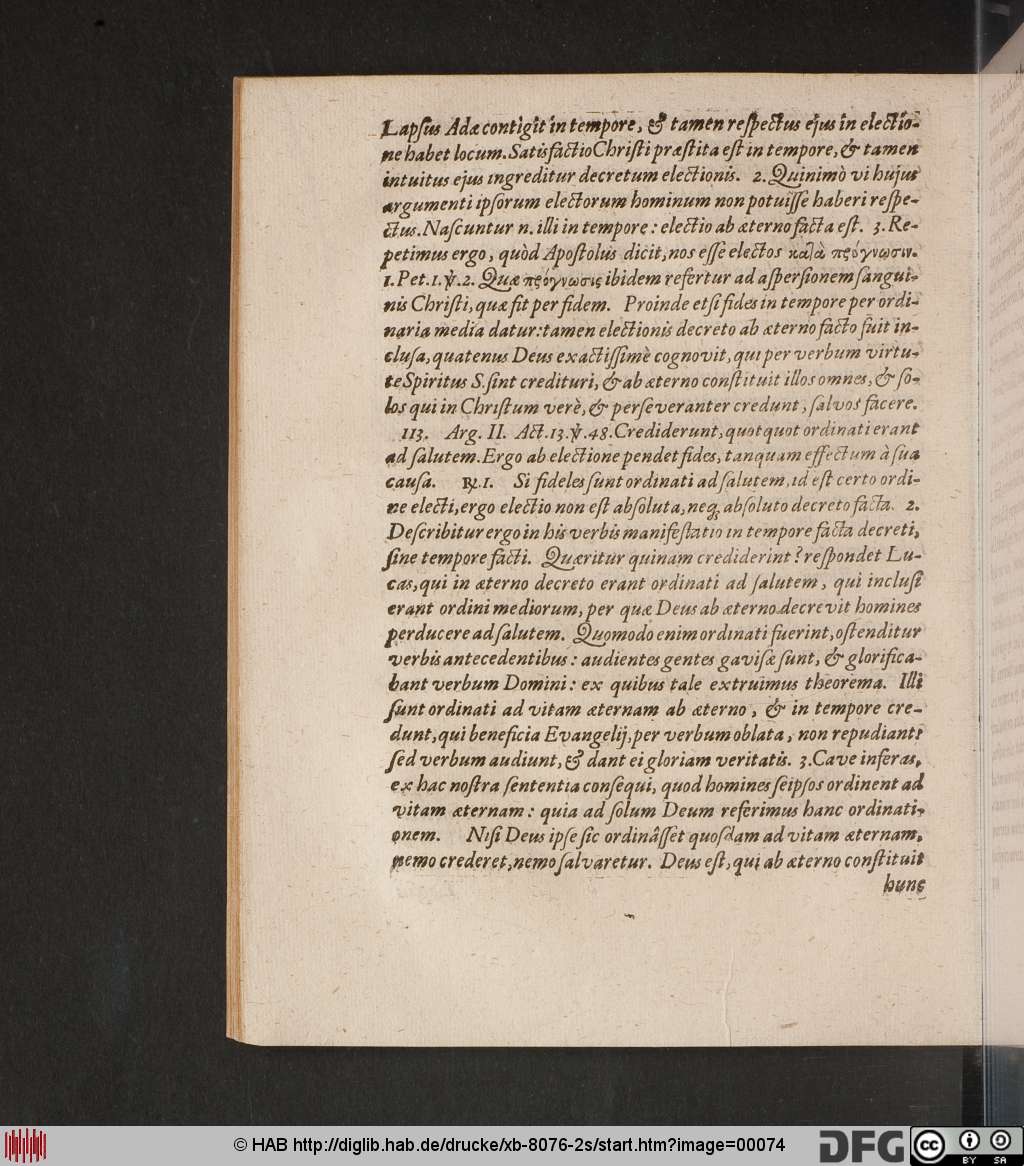 Lapſus Adæ contigit in tempore, & tamen reſpectus ejus in electio-
ne habet locum. Satisfactio Chriſti præſtita eſt in tempore, & tamen
intuitus ejus ingreditur decretum electionis. 2. Quinimò vi hujus
argumenti ipſorum electorum hominum non potuiſſe haberi reſpe-
ctus. Naſcuntur n. illi in tempore: electio ab æterno facta eſt. 3. Re-
petimus ergo, quòd Apoſtolus dicit, nos eſſe electos καλὰ πρόγνωσιν.
1. Pet. 1. ℣. 2. Quæ πρόγνωσις ibidem refertur ad aſperſionem ſangui-
nis Chriſti, quæ fit per fidem. Proinde etſi fides in tempore per ordi-
naria media datur: tamen electionis decreto ab æterno facto fuit in-
cluſa, quatenus Deus exactiſſimè cognovit, qui per verbum virtu-
te Spiritus S. ſint credituri, & ab æterno conſtituit illos omnes, & ſo-
los qui in Chriſtum verè, & perſeveranter credunt, ſalvos facere.
113. Arg. II. Act. 13. ℣. 48. Crediderunt, quotquot ordinati erant
ad ſalutem. Ergo ab electione pendet fides, tanquam effectum à ſua
cauſa. ℞. 1. Si fideles ſunt ordinati ad ſalutem, id eſt certo ordi-
ne electi, ergo electio non eſt abſoluta, neq; abſoluto decreto facta. 2.
Deſcribitur ergo in his verbis manifeſtatio in tempore facta decreti,
ſine tempore facti. Quæritur quinam crediderint? reſpondet Lu-
cas, qui in æterno decreto erant ordinati ad ſalutem, qui incluſi
erant ordini mediorum, per quæ Deus ab æterno decrevit homines
perducere ad ſalutem. Quomodo enim ordinati fuerint, oſtenditur
verbis antecedentibus: audientes gentes gaviſæ ſunt, & glorifica-
bant verbum Domini: ex quibus tale extruimus theorema. Illi
ſunt ordinati ad vitam æternam ab æterno, & in tempore cre-
dunt, qui beneficia Evangelij, per verbum oblata, non repudiant:
ſed verbum audiunt, & dant ei gloriam veritatis. 3. Cave inferas,
ex hac noſtra ſententia conſequi, quod homines ſeipſos ordinent ad
vitam æternam: quia ad ſolum Deum referimus hanc ordinati-
onem. Niſi Deus ipſe ſic ordinâſſet quoſdam ad vitam æternam,
nemo crederet, nemo ſalvaretur. Deus eſt, qui ab æterno conſtituit
hunc
© HAB http://diglib.hab.de/drucke/xb-8076-2s/start.htm?image=00074
DFG
cc BY SA